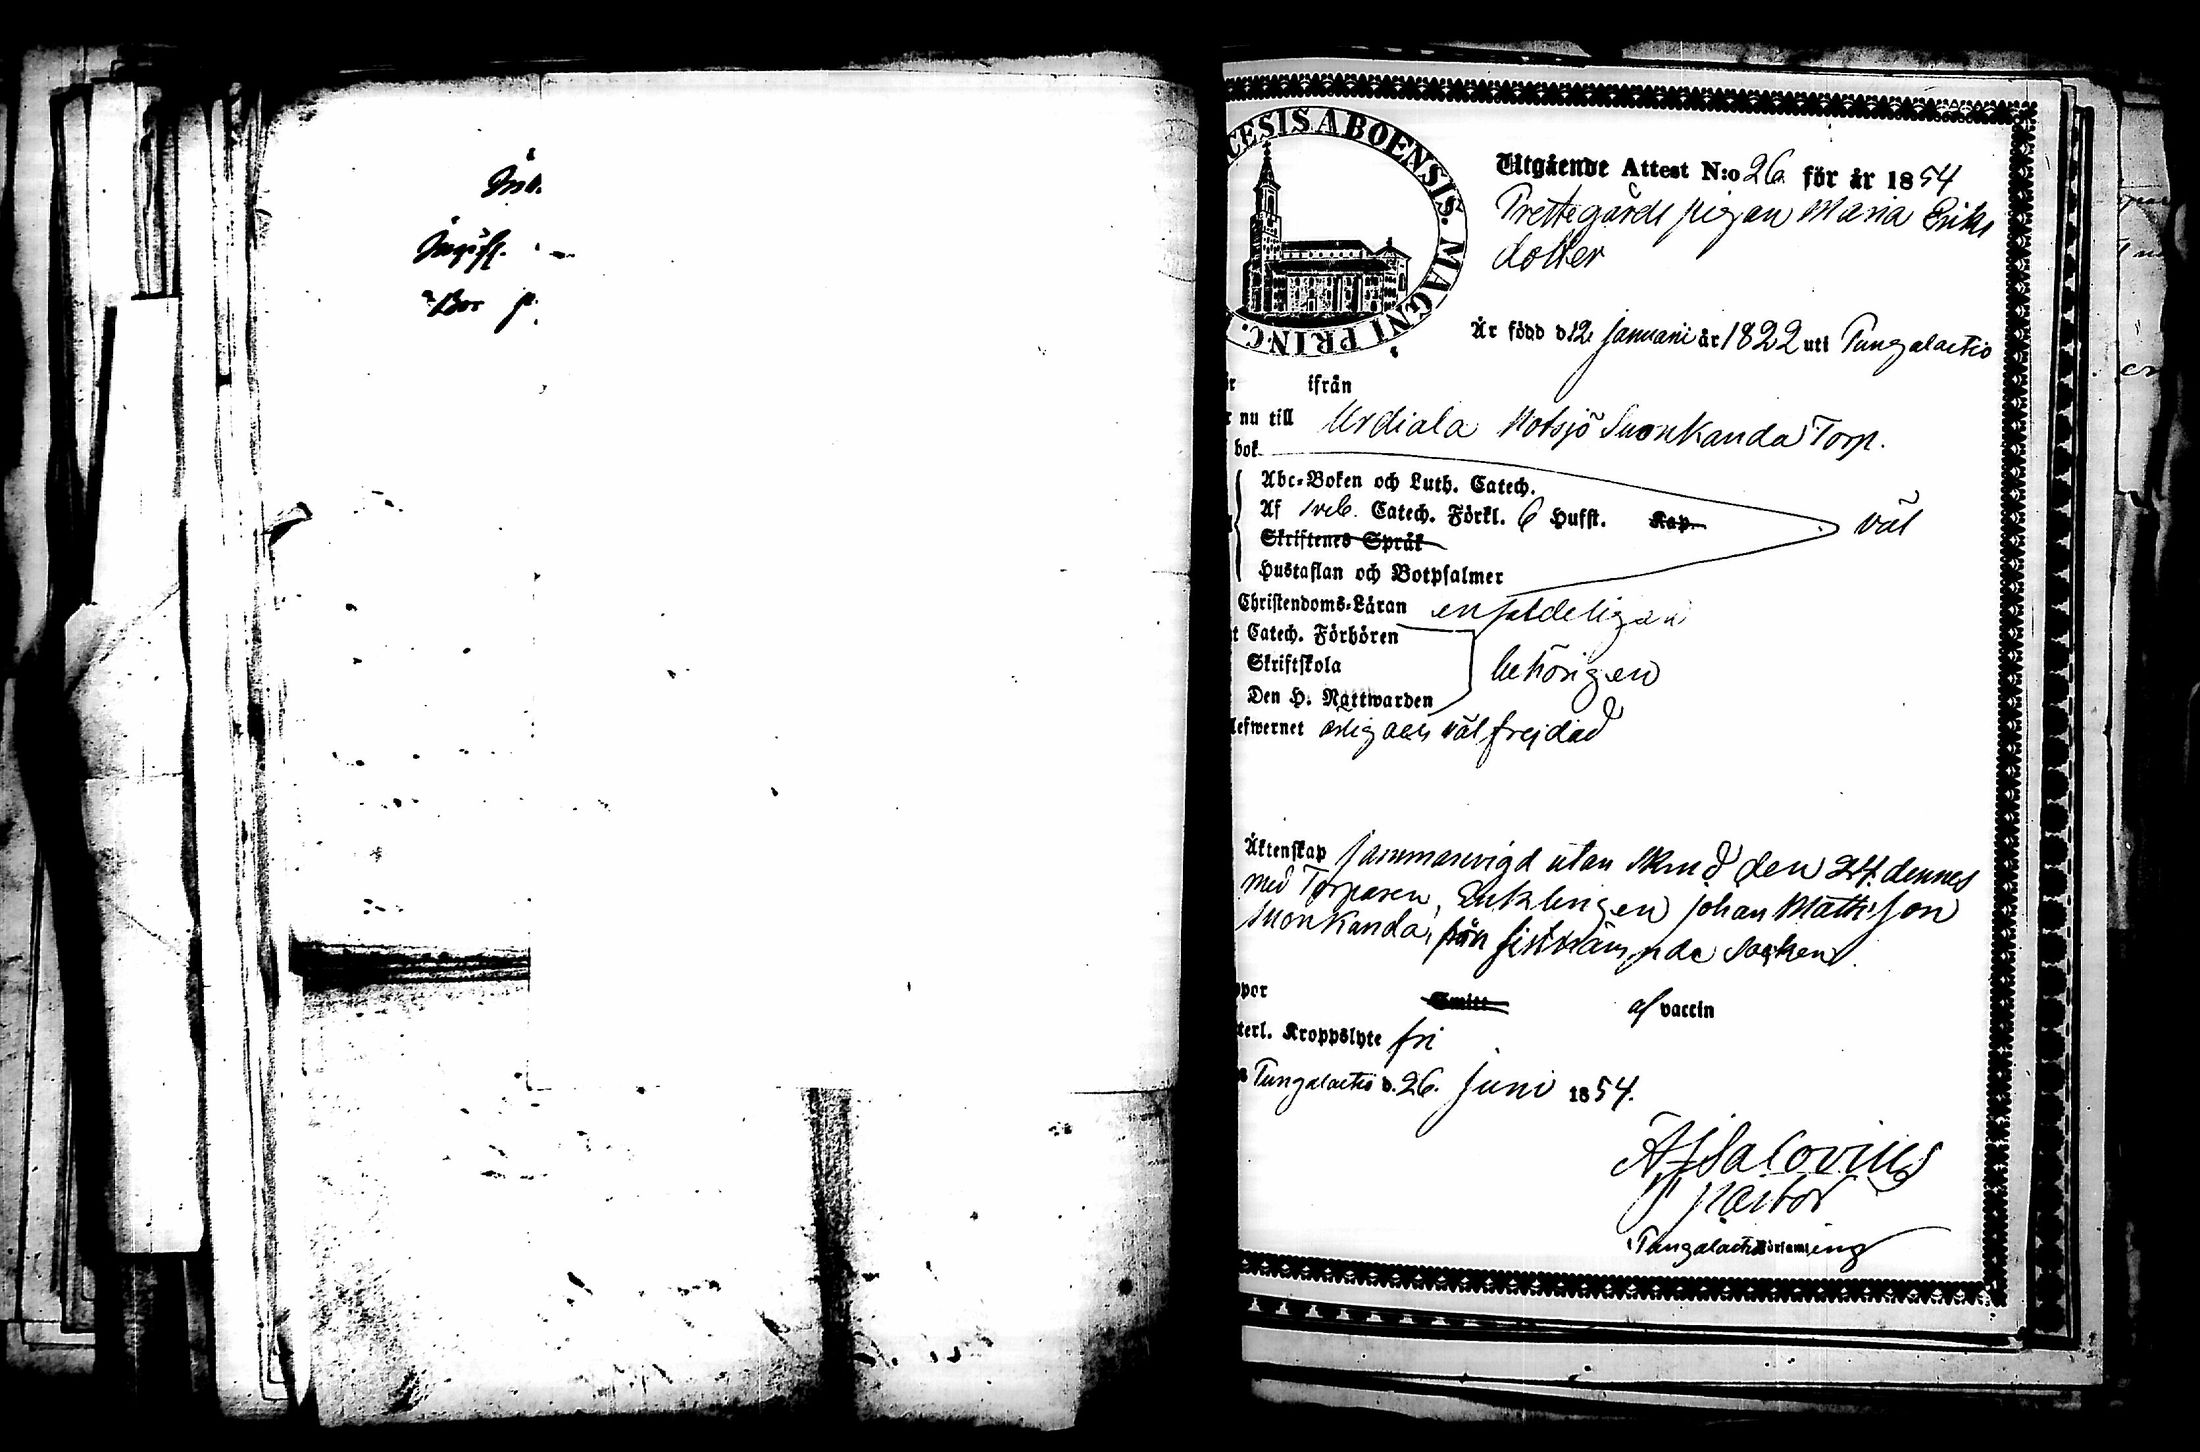 Bor p.
CESIS ABOENSIS. MAGNI PRINC.
Utgående Attest N:o 26 för år 1854
Prestegårds pigan Maria Eriks
dotter
Är född d 12 Januari år 1822 uti Tungalactio
ifrån
nu till Urdiala Notsjö Suonkanda Torp.
bok
Abc-Boken och Luth. Catech.
Af Sveb. Catech. Förkl. 6 Hufst. Kap. väl
Skriftenes Språk
Hustaflan och Botpsalmer
Christendoms-Läran enfaldeligen
Catech. Förhören
Skriftskola behörigen
Den H. Nattwarden
lefwernet ärlig och väl frejdad
Äktenskap sammanvigd utan den 24 dennes
med Torparen, Enklingen Johan Matts son
Suonkanda, från sistnämnde Socken.
Smitt af vaccin
Kroppslyte fri
Tungalactio d. 26. Juni 1854.
Salovius
Pastor
Tungalactio Församling